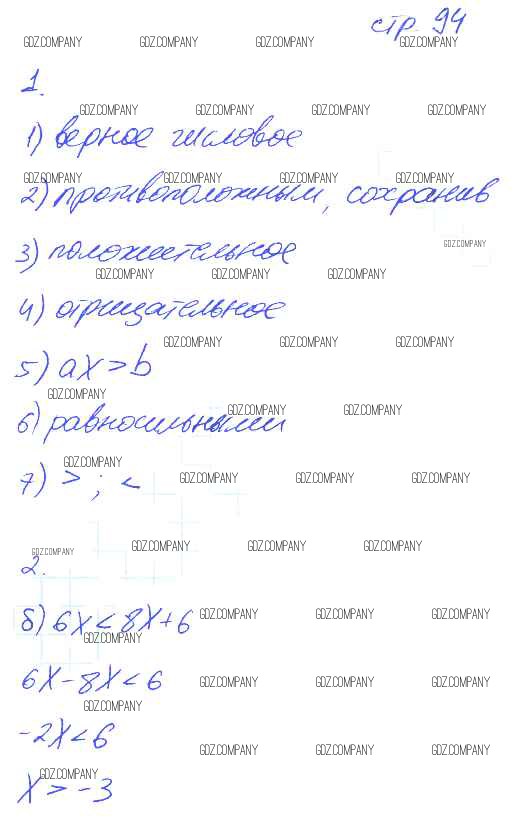 стр 94
GDZ.COMPANY GDZ.COMPANY GDZ.COMPANY GDZ.COMPANY
1.
GDZ.COMPANY GDZ.COMPANY GDZ.COMPANY GDZ.COMPANY
1) верное числовое
GDZ.COMPANY GDZ.COMPANY GDZ.COMPANY GDZ.COMPANY
2) противоположным, сохранив
GDZ.COMPANY
3) положительное
GDZ.COMPANY GDZ.COMPANY GDZ.COMPANY
4) отрицательное
GDZ.COMPANY GDZ.COMPANY GDZ.COMPANY
5) ax > b
GDZ.COMPANY
GDZ.COMPANY GDZ.COMPANY
6) равносильными
GDZ.COMPANY GDZ.COMPANY GDZ.COMPANY GDZ.COMPANY
7) > ; <
GDZ.COMPANY GDZ.COMPANY GDZ.COMPANY GDZ.COMPANY
2.
GDZ.COMPANY GDZ.COMPANY GDZ.COMPANY
б) 6x < 8x + 6
GDZ.COMPANY
6x - 8x < 6
GDZ.COMPANY GDZ.COMPANY GDZ.COMPANY
GDZ.COMPANY
-2x < 6
GDZ.COMPANY GDZ.COMPANY GDZ.COMPANY
GDZ.COMPANY
x > -3